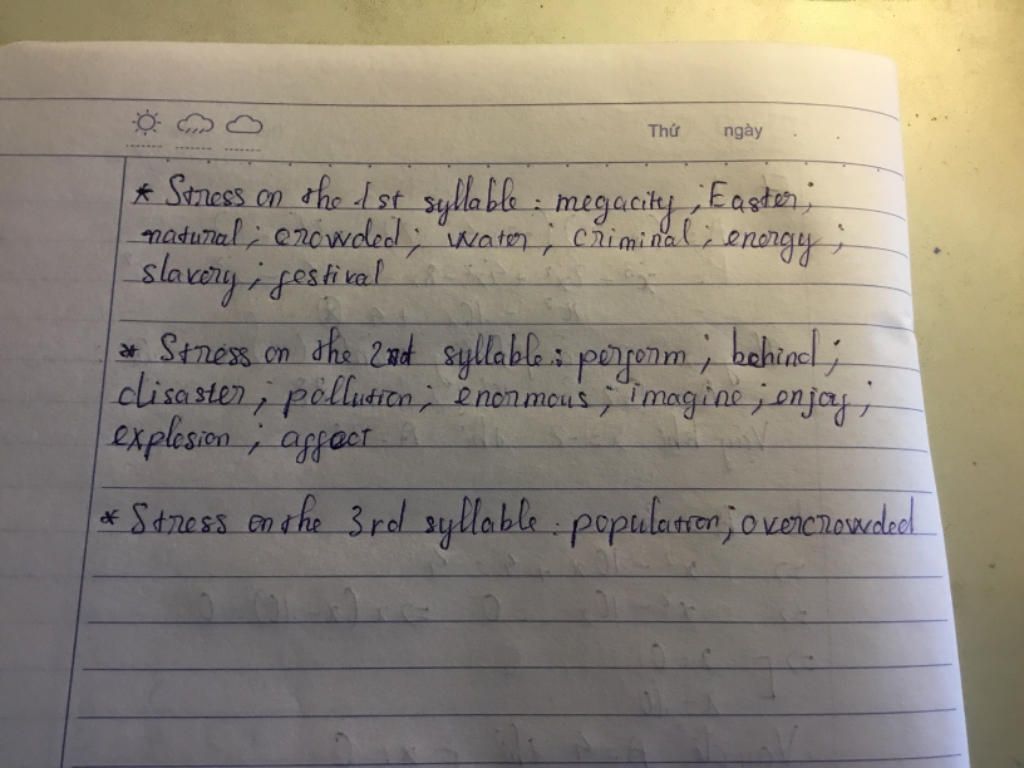 Thứ ngày
* Stress on the 1st syllable : megacity ; Easter ;
natural ; crowded ; water ; criminal ; energy ;
slavery ; festival
* Stress on the 2nd syllable : perform ; behind ;
disaster ; pollution ; enormous ; imagine ; enjoy ;
explosion ; affect
* Stress on the 3rd syllable : population ; overcrowded